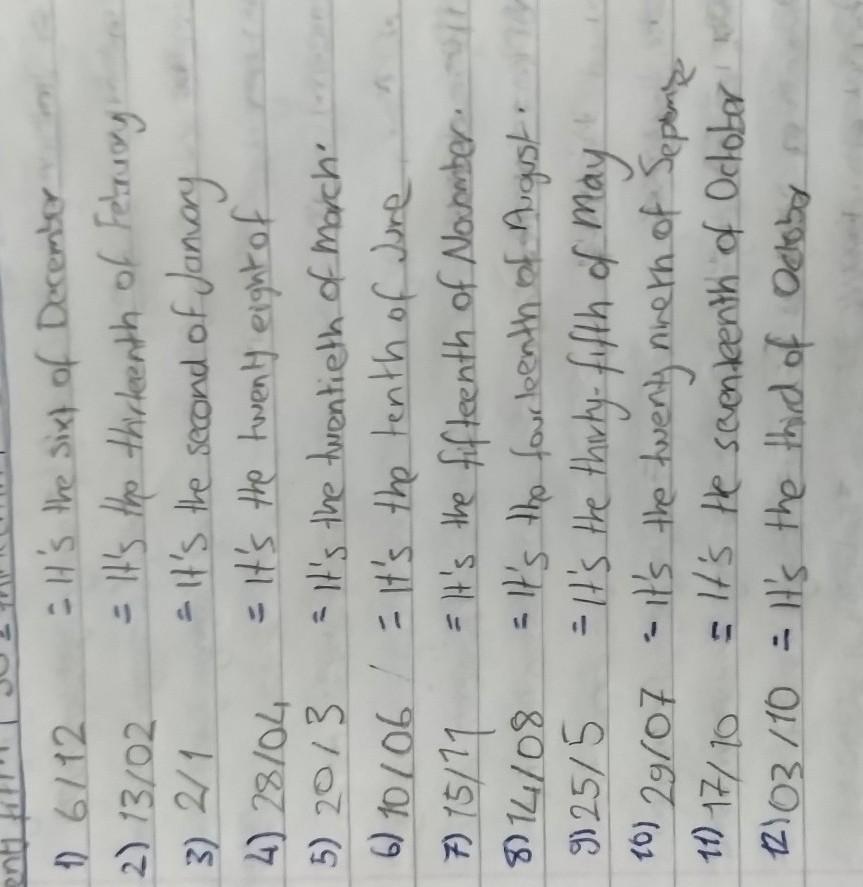 1) 6/12 = It's the sixt of December
2) 13/02 = It's the thirteenth of February
3) 2/1 = It's the second of January
4) 28/04 = It's the twenty eight of
5) 20/3 = It's the twentieth of march.
6) 10/06 / = It's the tenth of June
7) 15/11 = It's the fifteenth of November.
8) 14/08 = It's the fourteenth of August.
9) 25/5 = It's the thirty-fifth of may
10) 29/07 = It's the twenty nineth of
11) 17/10 = It's the seventeenth of October
12) 03/10 = It's the third of October